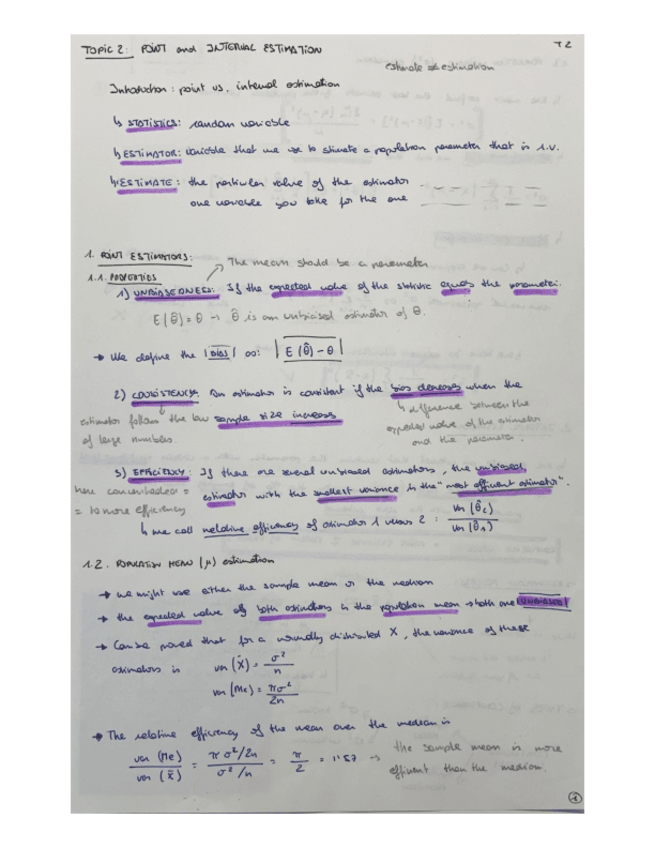 TOPIC 2: POINT and INTERVAL ESTIMATION
T2
estimate ≠ estimation
Introduction: point vs. interval estimation
↳ STATISTICS: random variable
↳ ESTIMATOR: variable that we use to stimate a population parameter that is r.v.
↳ ESTIMATE: the particular value of the estimator
one variable you take for the one
1. POINT ESTIMATORS:
The mean should be a parameter
1.1. PROPERTIES
1) UNBIASEDNESS: If the expected value of the statistic equals the parameter.
E(θ̂) = θ → θ̂ is an unbiased estimator of θ.
→ We define the |bias| as: |E(θ̂) - θ|
2) CONSISTENCY: An estimator is consistent if the bias decreases when the
sample size increases
estimator follows the law
of large numbers.
↳ difference between the
expected value of the estimator
and the parameter.
3) EFFICIENCY: If there are several unbiased estimators, the unbiased
estimator with the smallest variance is the "most efficient estimator".
more concentrated =
= to more efficiency
↳ we call relative efficiency of estimator 1 versus 2 = var(θ̂2) / var(θ̂1)
1.2. POPULATION MEAN (μ) estimation
→ we might use either the sample mean or the median
→ the expected value of both estimators is the population mean → both are UNBIASED!
→ Can be proved that for a normally distributed X, the variance of these
estimators is var(X̄) = σ²/n
var(Me) = πσ²/2n
→ The relative efficiency of the mean over the median is
var(Me)/var(x̄) = πσ²/2n / σ²/n = π/2 = 1'57 →
the sample mean is more
efficient than the median.
1